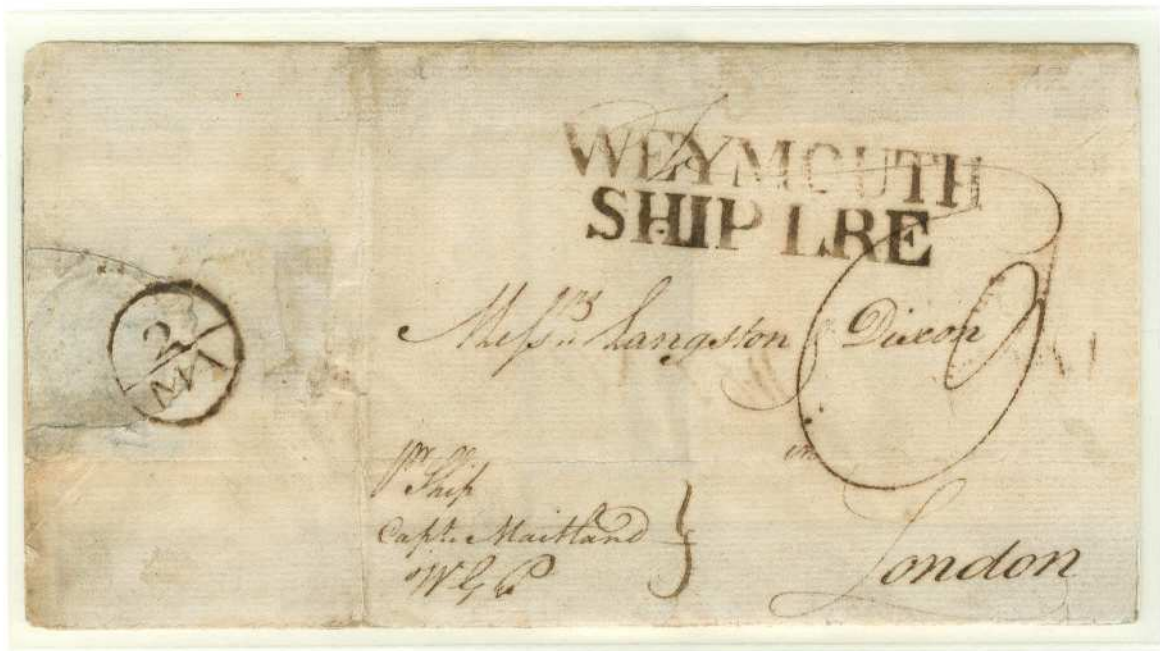 WEYMOUTH
SHIP LRE
Mess.rs Langston & Dixon
in
London
pr Ship
Capt. Maitland
W G P
2